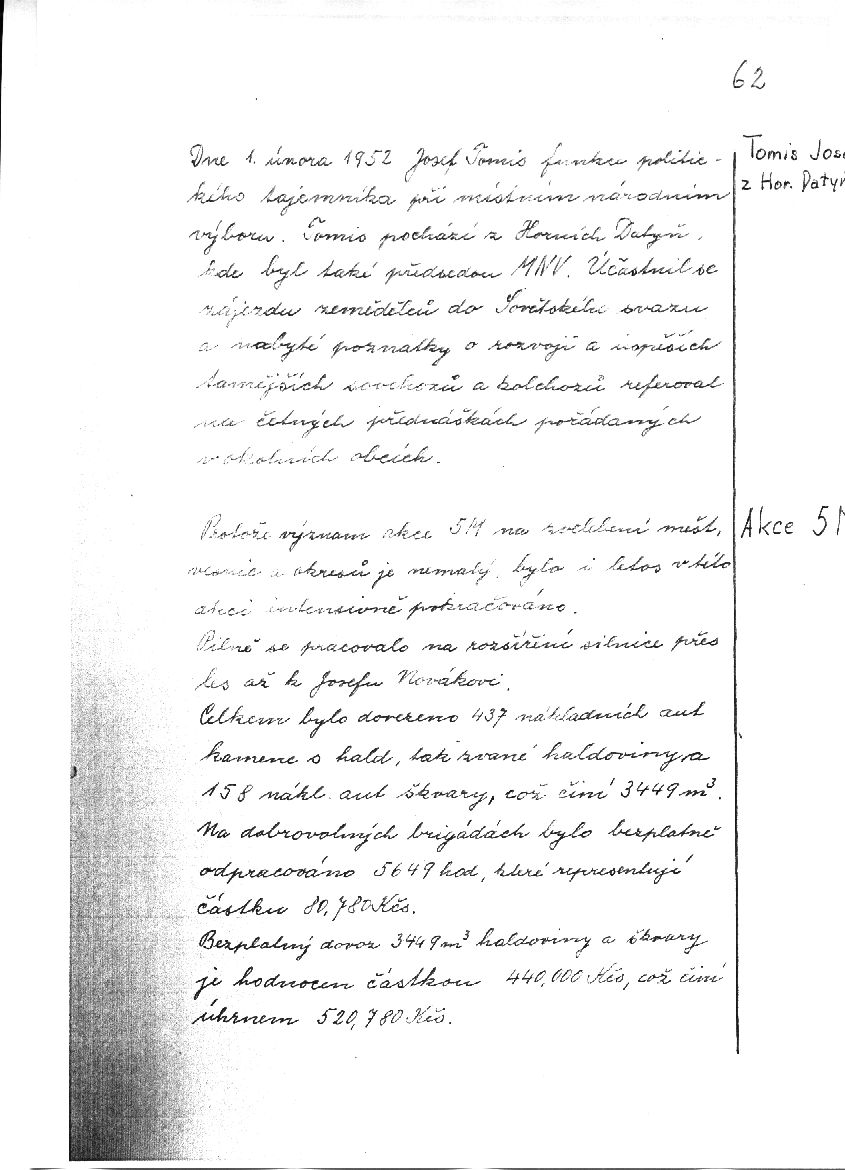 62
Tomis Jose
z Hor. Datyň
Dne 1. února 1952 Josef Tomis funkci politic-
kého tajemníka při místním národním
výboru. Tomis pochází z Horních Datyň,
kde byl také předsedou MNV. Účastnil se
zájezdu zemědělců do Sovětského svazu
a nabyté poznatky o rozvoji a úspěších
tamějších sovchozů a kolchozů referoval
na četných přednáškách pořádaných
v okolních obcích.
Akce 5M
Protože význam akce 5M na zvelebení měst,
vesnic a okresů je nemalý, bylo i letos v této
akci intensivně pokračováno.
Pilně se pracovalo na rozšíření silnice přes
les až k Josefu Novákovi.
Celkem bylo dovezeno 437 nákladních aut
kamene s hald, tak zvané haldoviny, a
158 nákl. aut škvary, což činí 3449 m³.
Na dobrovolných brigádách bylo bezplatně
odpracováno 5649 hod, které representují
částku 80,780 Kčs.
Bezplatný dovoz 3449 m³ haldoviny a škvary
je hodnocen částkou 440,000 Kčs, což činí
úhrnem 520,780 Kčs.